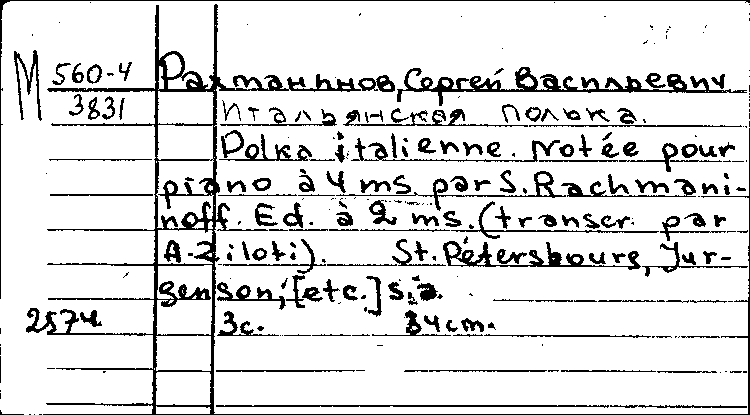 М 560-4 Рахманинов, Сергей Васильевич
3831 Итальянская полька.
Polka italienne. Notée pour
piano à 4 ms. par S. Rachmani-
noff. Ed. à 2 ms. (transcr. par
A. Ziloti). St. Pétersbourg, Jur-
genson, [etc.] s.a.
2574 3с. 34cm.